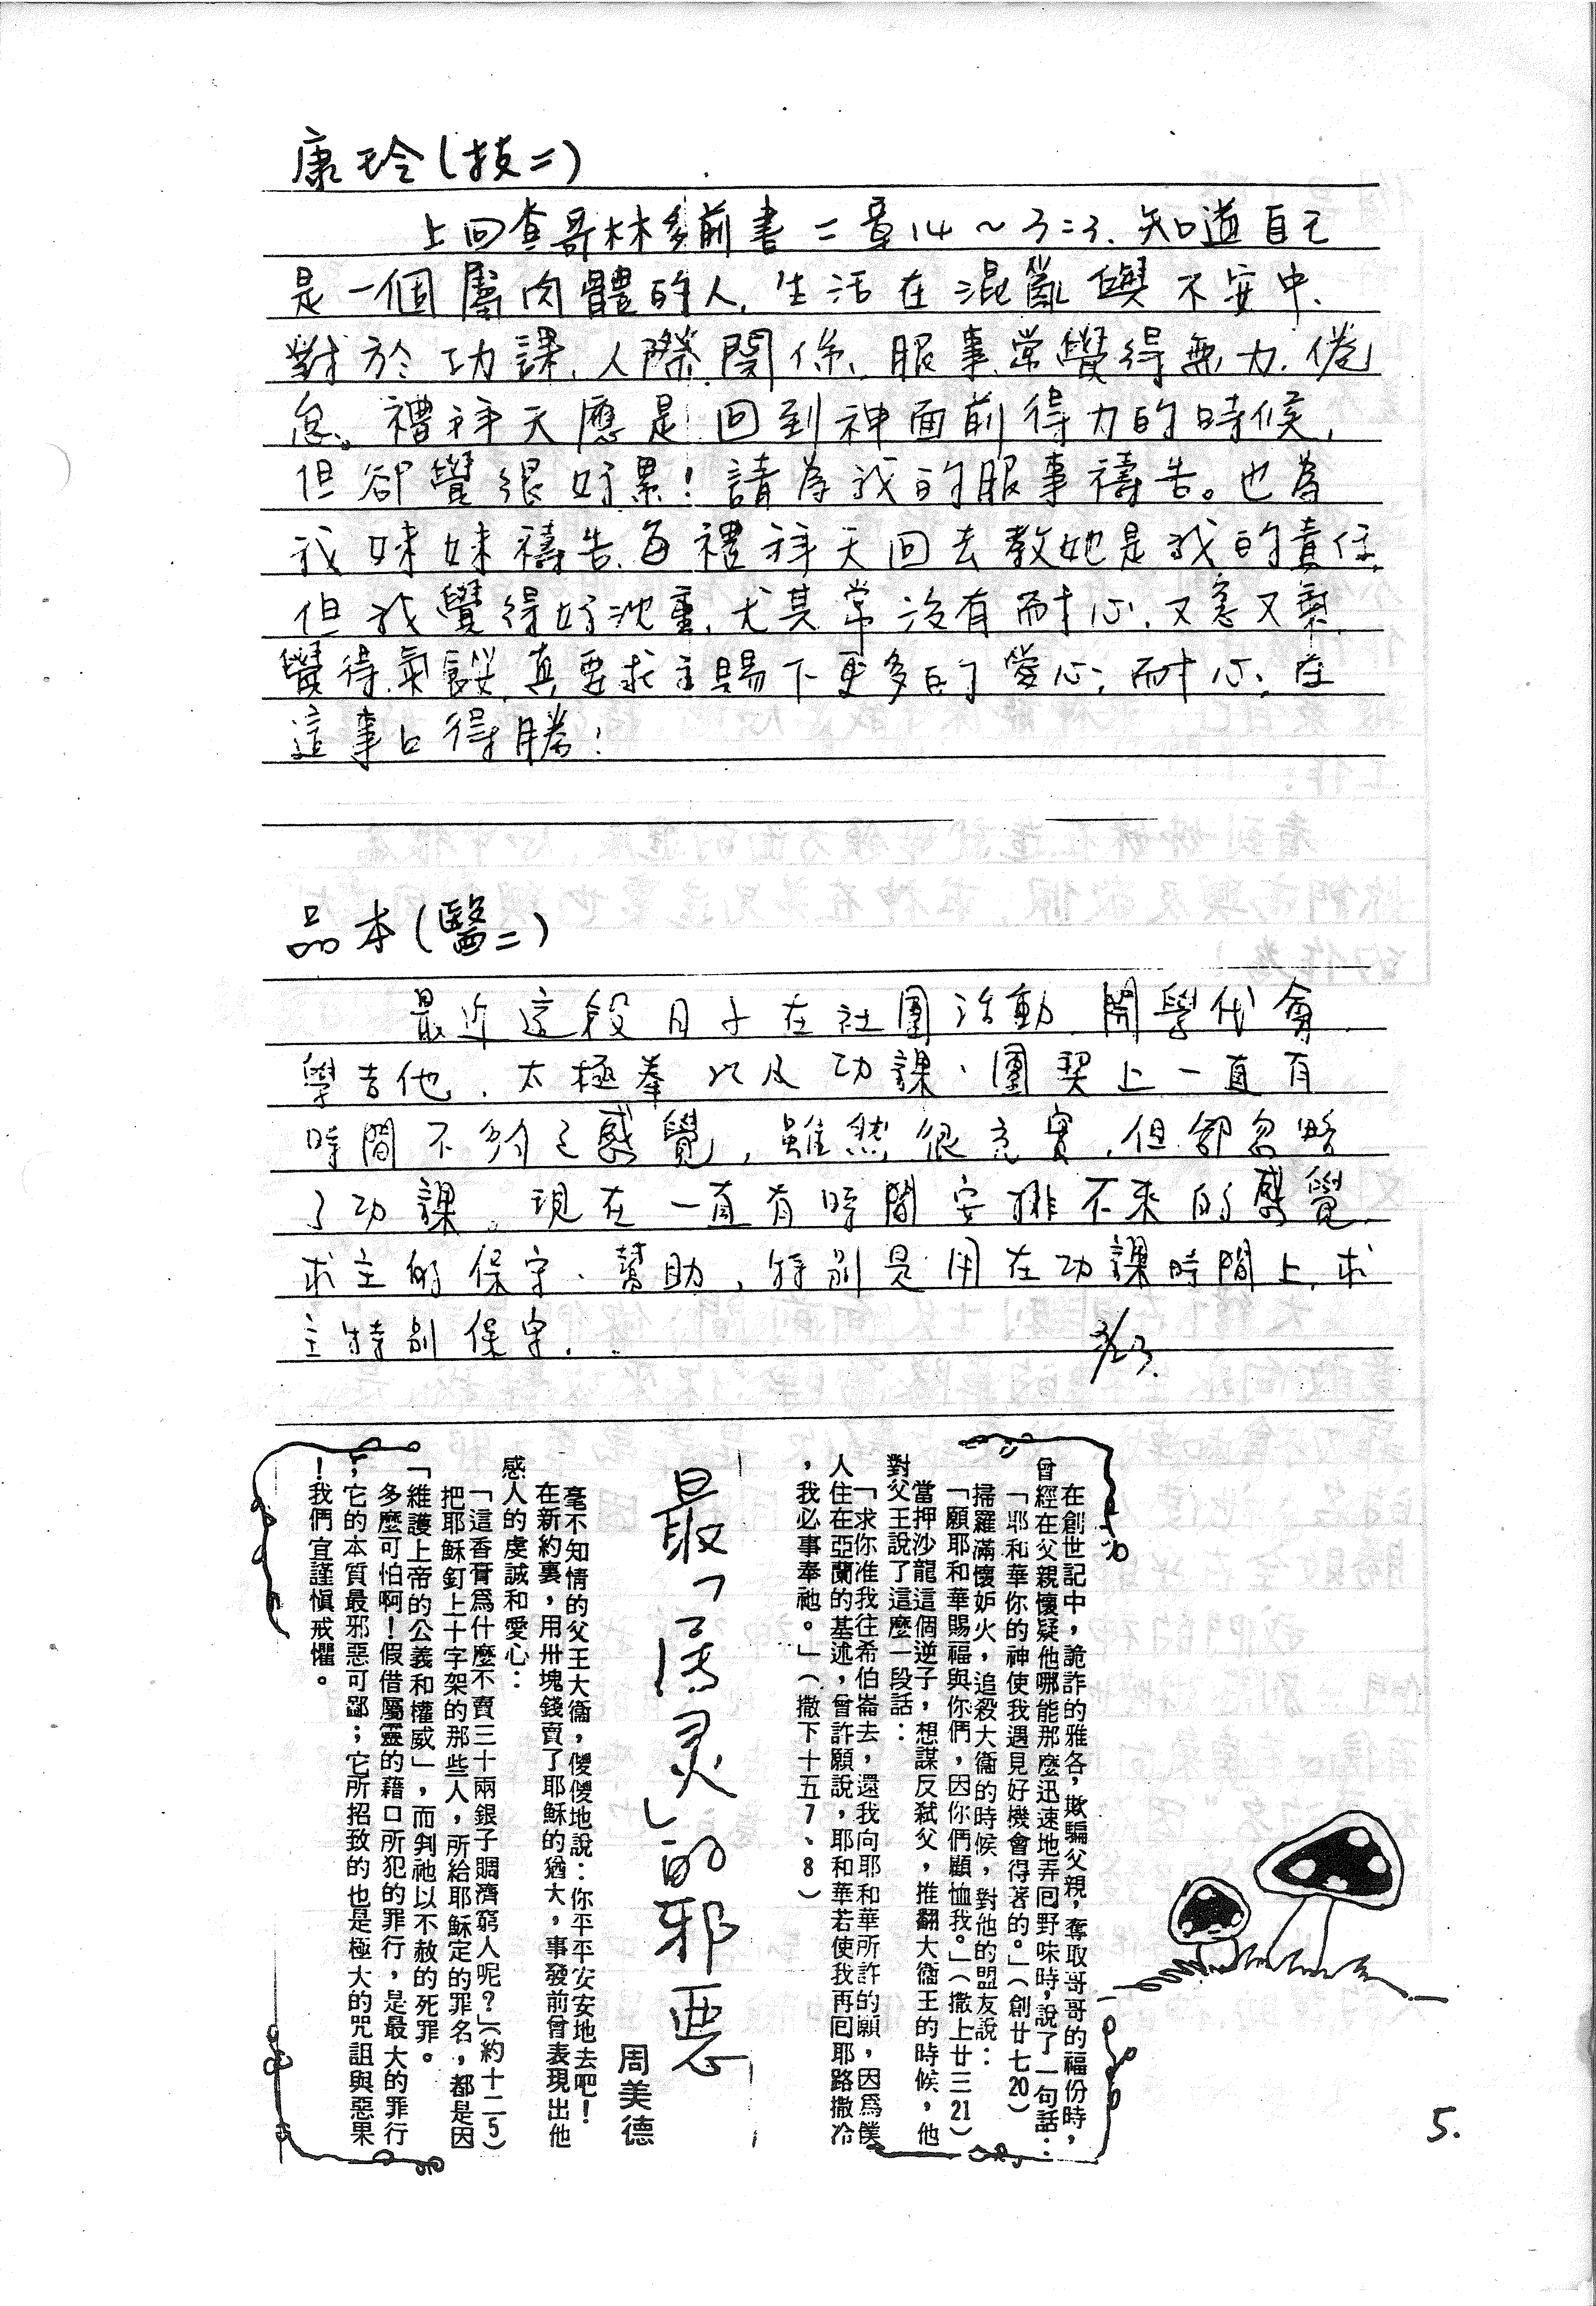 康玲(技二)
上回查哥林多前書二章14～3:3.知道自己
是一個屬肉體的人.生活在混亂與不安中、
對於功課、人際關係、服事常覺得無力.倦
怠。禮拜天應是回到神面前得力的時候,
但卻覺很好累!請為我的服事禱告。也為
我妹妹禱告.每禮拜天回去教她是我的責任.
但我覺得好沈重.尤其常沒有耐心.又急又氣.
覺得氣餒.真要求主賜下更多的愛心;耐心;在
這事以得勝!
品本(醫二)
最近這段日子在社團活動.開學代會.
學吉他.太極拳以及功課、團契上一直有
時間不夠之感覺,雖然很充實,但卻忽略
了功課。現在一直有時間安排不來的感覺.
求主的保守、幫助,特別是用在功課時間上.求
主特別保守.
3/23.
在創世記中,詭詐的雅各,欺騙父親,奪取哥哥的福份時,
曾經在父親懷疑他哪能那麼迅速地弄回野味時,說了一句話:
「耶和華你的神使我遇見好機會得著的。」(創廿七20)
掃羅滿懷妒火,追殺大衞的時候,對他的盟友說:
「願耶和華賜福與你們,因你們顧恤我。」(撒上廿三21)
當押沙龍這個逆子,想謀反弒父,推翻大衞王的時候,他
對父王說了這麼一段話:
「求你准我往希伯崙去,還我向耶和華所許的願,因爲僕
人住在亞蘭的基述,曾許願說,耶和華若使我再回耶路撒冷
,我必事奉祂。」(撒下十五7、8)
最「屬灵」的邪惡
周美德
毫不知情的父王大衞,儍儍地說:你平平安安地去吧!
在新約裏,用卅塊錢賣了耶穌的猶大,事發前曾表現出他
感人的虔誠和愛心:
「這香膏爲什麼不賣三十兩銀子賙濟窮人呢?」(約十二5)
把耶穌釘上十字架的那些人,所給耶穌定的罪名,都是因
「維護上帝的公義和權威」,而判祂以不赦的死罪。
多麼可怕啊!假借屬靈的藉口所犯的罪行,是最大的罪行
;它的本質最邪惡可鄙;它所招致的也是極大的咒詛與惡果
!我們宜謹慎戒懼。
5.